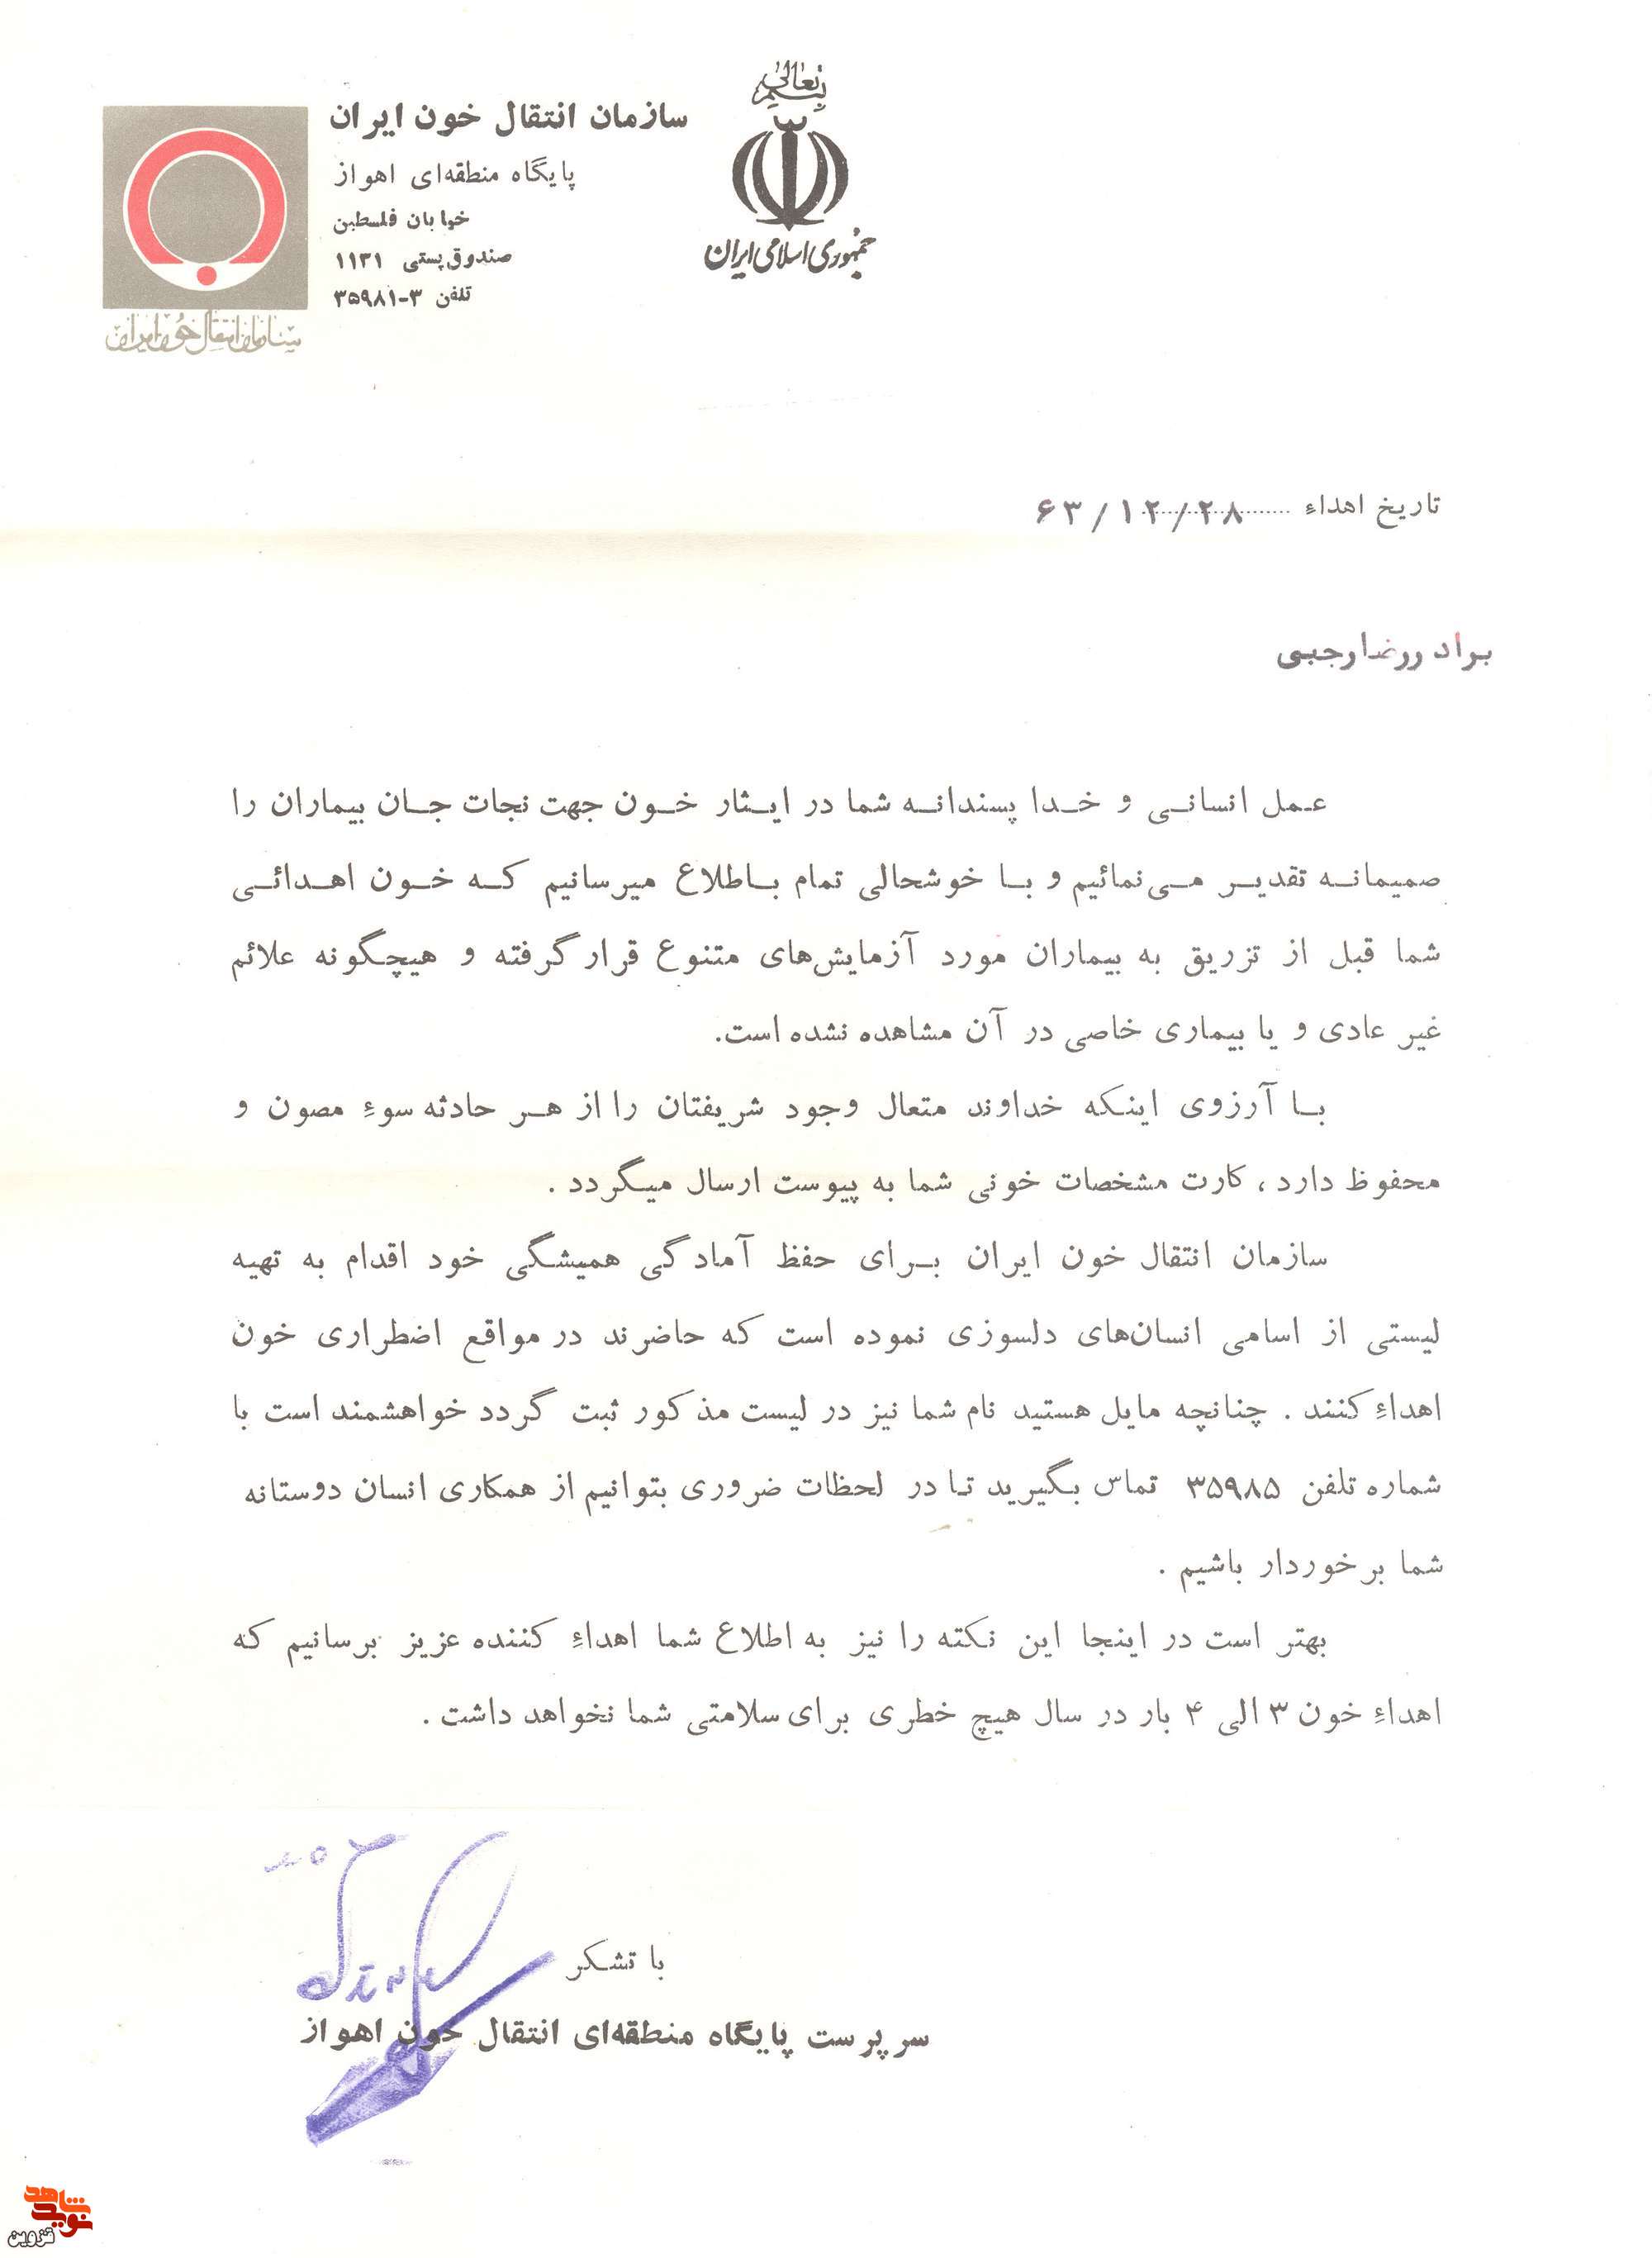 بسمه تعالی
جمهوری اسلامی ایران
سازمان انتقال خون ایران
پایگاه منطقه‌ای اهواز
خیابان فلسطین
صندوق پستی ۱۱۳۱
تلفن ۳-۳۵۹۸۱
سازمان انتقال خون ایران
تاریخ اهداء ۶۳/۱۲/۲۸
برادر رضا رجبی
عمل انسانی و خدا پسندانه شما در ایثار خون جهت نجات جان بیماران را
صمیمانه تقدیر می‌نمائیم و با خوشحالی تمام باطلاع میرسانیم که خون اهدائی
شما قبل از تزریق به بیماران مورد آزمایش‌های متنوع قرار گرفته و هیچگونه علائم
غیر عادی و یا بیماری خاصی در آن مشاهده نشده است.
با آرزوی اینکه خداوند متعال وجود شریفتان را از هر حادثه سوء مصون و
محفوظ دارد ، کارت مشخصات خونی شما به پیوست ارسال میگردد .
سازمان انتقال خون ایران برای حفظ آمادگی همیشگی خود اقدام به تهیه
لیستی از اسامی انسان‌های دلسوزی نموده است که حاضرند در مواقع اضطراری خون
اهداء کنند . چنانچه مایل هستید نام شما نیز در لیست مذکور ثبت گردد خواهشمند است با
شماره تلفن ۳۵۹۸۵ تماس بگیرید تا در لحظات ضروری بتوانیم از همکاری انسان دوستانه
شما برخوردار باشیم .
بهتر است در اینجا این نکته را نیز به اطلاع شما اهداء کننده عزیز برسانیم که
اهداء خون ۳ الی ۴ بار در سال هیچ خطری برای سلامتی شما نخواهد داشت .
با تشکر
سرپرست پایگاه منطقه‌ای انتقال خون اهواز
نوید شاهد
قزوین